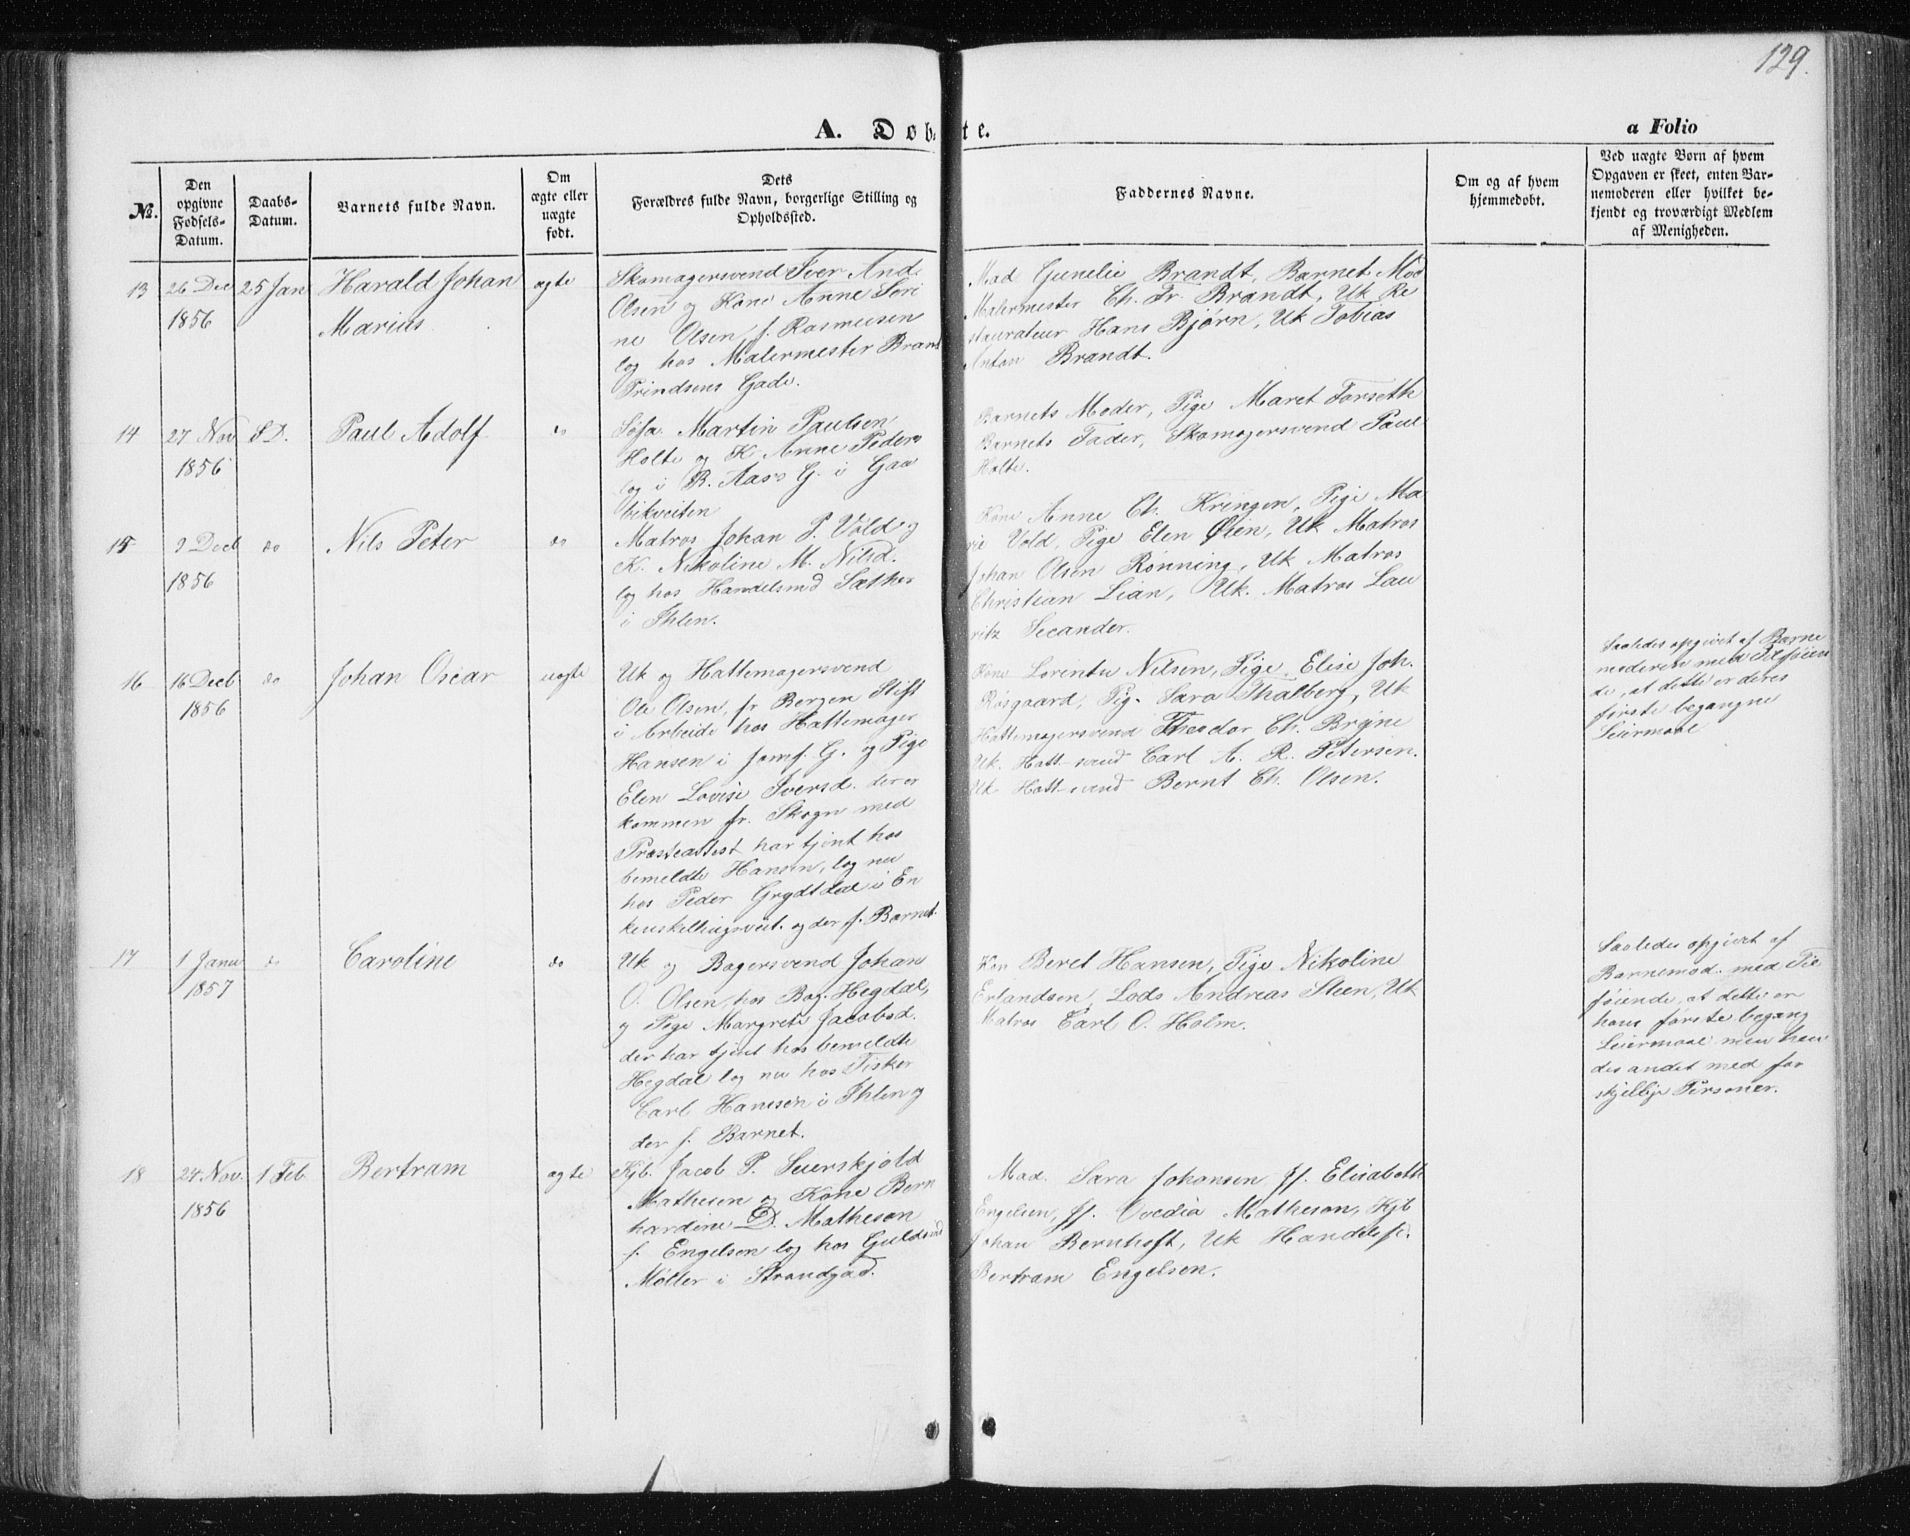 129.
A. Døbte.
a Folio
№.
Den opgivne Fødsels-Datum.
Daabs-Datum.
Barnets fulde Navn.
Om ægte eller uægte født.
Dets Forældres fulde Navn, borgerlige Stilling og Opholdssted.
Faddernes Navne.
Om og af hvem hjemmedøbt.
Ved uægte Børn af hvem Opgaven er skeet, enten Barnemoderen eller hvilket bekjendt og troværdigt Medlem af Menigheden.
13
26 Dec
1856
25 Jan
Harald Johan
Marius
ægte
Skomagersvend Iver And.
Olsen og Kone Anne Seri
ne Olsen f. Rasmussen
log hos Malermester Brandt
Prindsens Gade.
Mad Gunelie Brandt, Barnet Mod
Malermester Ch. Fr. Brandt, Uk Re
staurateur Hans Bjørn, Uk Tobias
Anton Brandt.
14
27 Nov
1856
S.D.
Paul Adolf
do
Søfa. Martin Paulsen
Holte og K. Anne Peders
log i B. Aass G. i Gau
bikveiten
Barnets Moder, Pige Maret Forseth
Barnets Fader, Skomagersvend Paul
Holte.
15
9 Decb
1856
do
Nils Peter
do
Matros Johan P. Vold og
K. Nikoline M. Nilsd.
log hos Handelsmd Sæther
i Ihlen.
Kone Anne Ch. Kringen, Pige Ma
rie Vold, Pige Elen Øien, Uk Matros
Johan Olsen Rønning, Uk Matros
Christian Lian, Uk. Matros Lau
ritz Secander.
16
16 Decb
1856
do
Johan Oscar
uægte
Uk og Hattemagersvend
Ole Olsen, fr Bergen Stift
i Arbeide hos Hattemager
Hansen i Jomf. G. og Pige
Elen Lovise Iversd. der er
kommen fr. Skogn med
Præsteattest har tjent hos
bemeldte Hansen, log nu
hos Peder Grydtdal i En
kenskillingsveit. og der f. Barnet.
Kone Lorentse Nilsen, Pige Elise Joh.
Røsgaard, Pig. Sara Thalberg, Uk
Hattemagersvend Theodor Ch. Bryne
Uk. Hatt-svend Carl A. R. Petersen.
Uk Hatt-svend Bernt Ch. Olsen.
Saaledes opgivet af Barne
moderen med Tilføien
de, at dette er deres
første begangne
Leiermaal
17
1 Janu
1857
do
Caroline
do
Uk og Bagersvend Johan
O. Olsen, hos Bag. Hegdal,
og Pige Margrete Jacobsd.
der har tjent hos bemeldte
Hegdal log nu hos Fisker
Carl Hansen i Ihlen og
der f. Barnet.
Kon Beret Hansen, Pige Nikoline
Erlandsen, Lods Andreas Steen, Uk
Matros Carl O. Holm.
Saaledes opgivet af
Barnemod. med Til
føiende, at dette er
hans første begang
Leiermaal men hen
des andet med for
skjellige Personer.
18
24. Nov.
1856
1 Feb.
Bertram
ægte
Kjb. Jacob P. Seierskjold
Mathesen og Kone Bern
hardine D. Matheson
f. Engelsen log hos Guldsmd
Møller i Strandgad.
Mad. Sara Johansen, Jf. Elisabeth
Engelsen, Jf. Ovedia Matheson, Kjb
Johan Bernhoft, Uk Handelsf.
Bertram Engelsen.